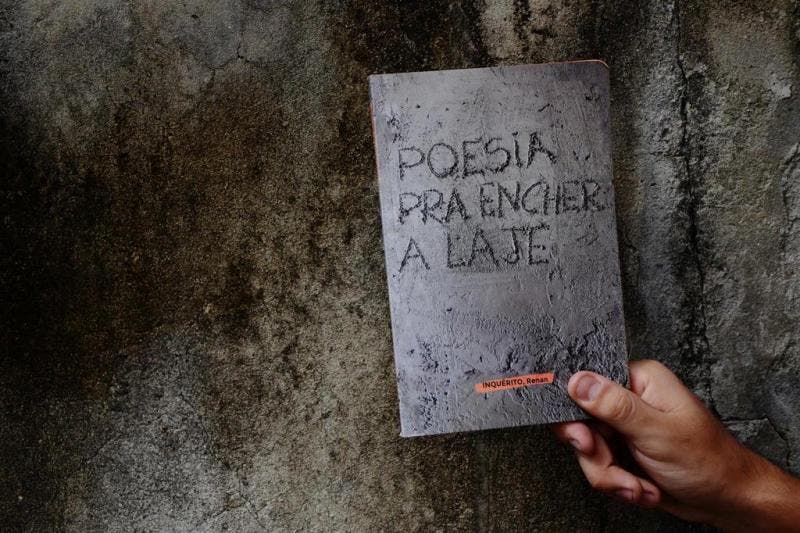 POESIA
PRA ENCHER
A LAJE
INQUÉRITO, Renan